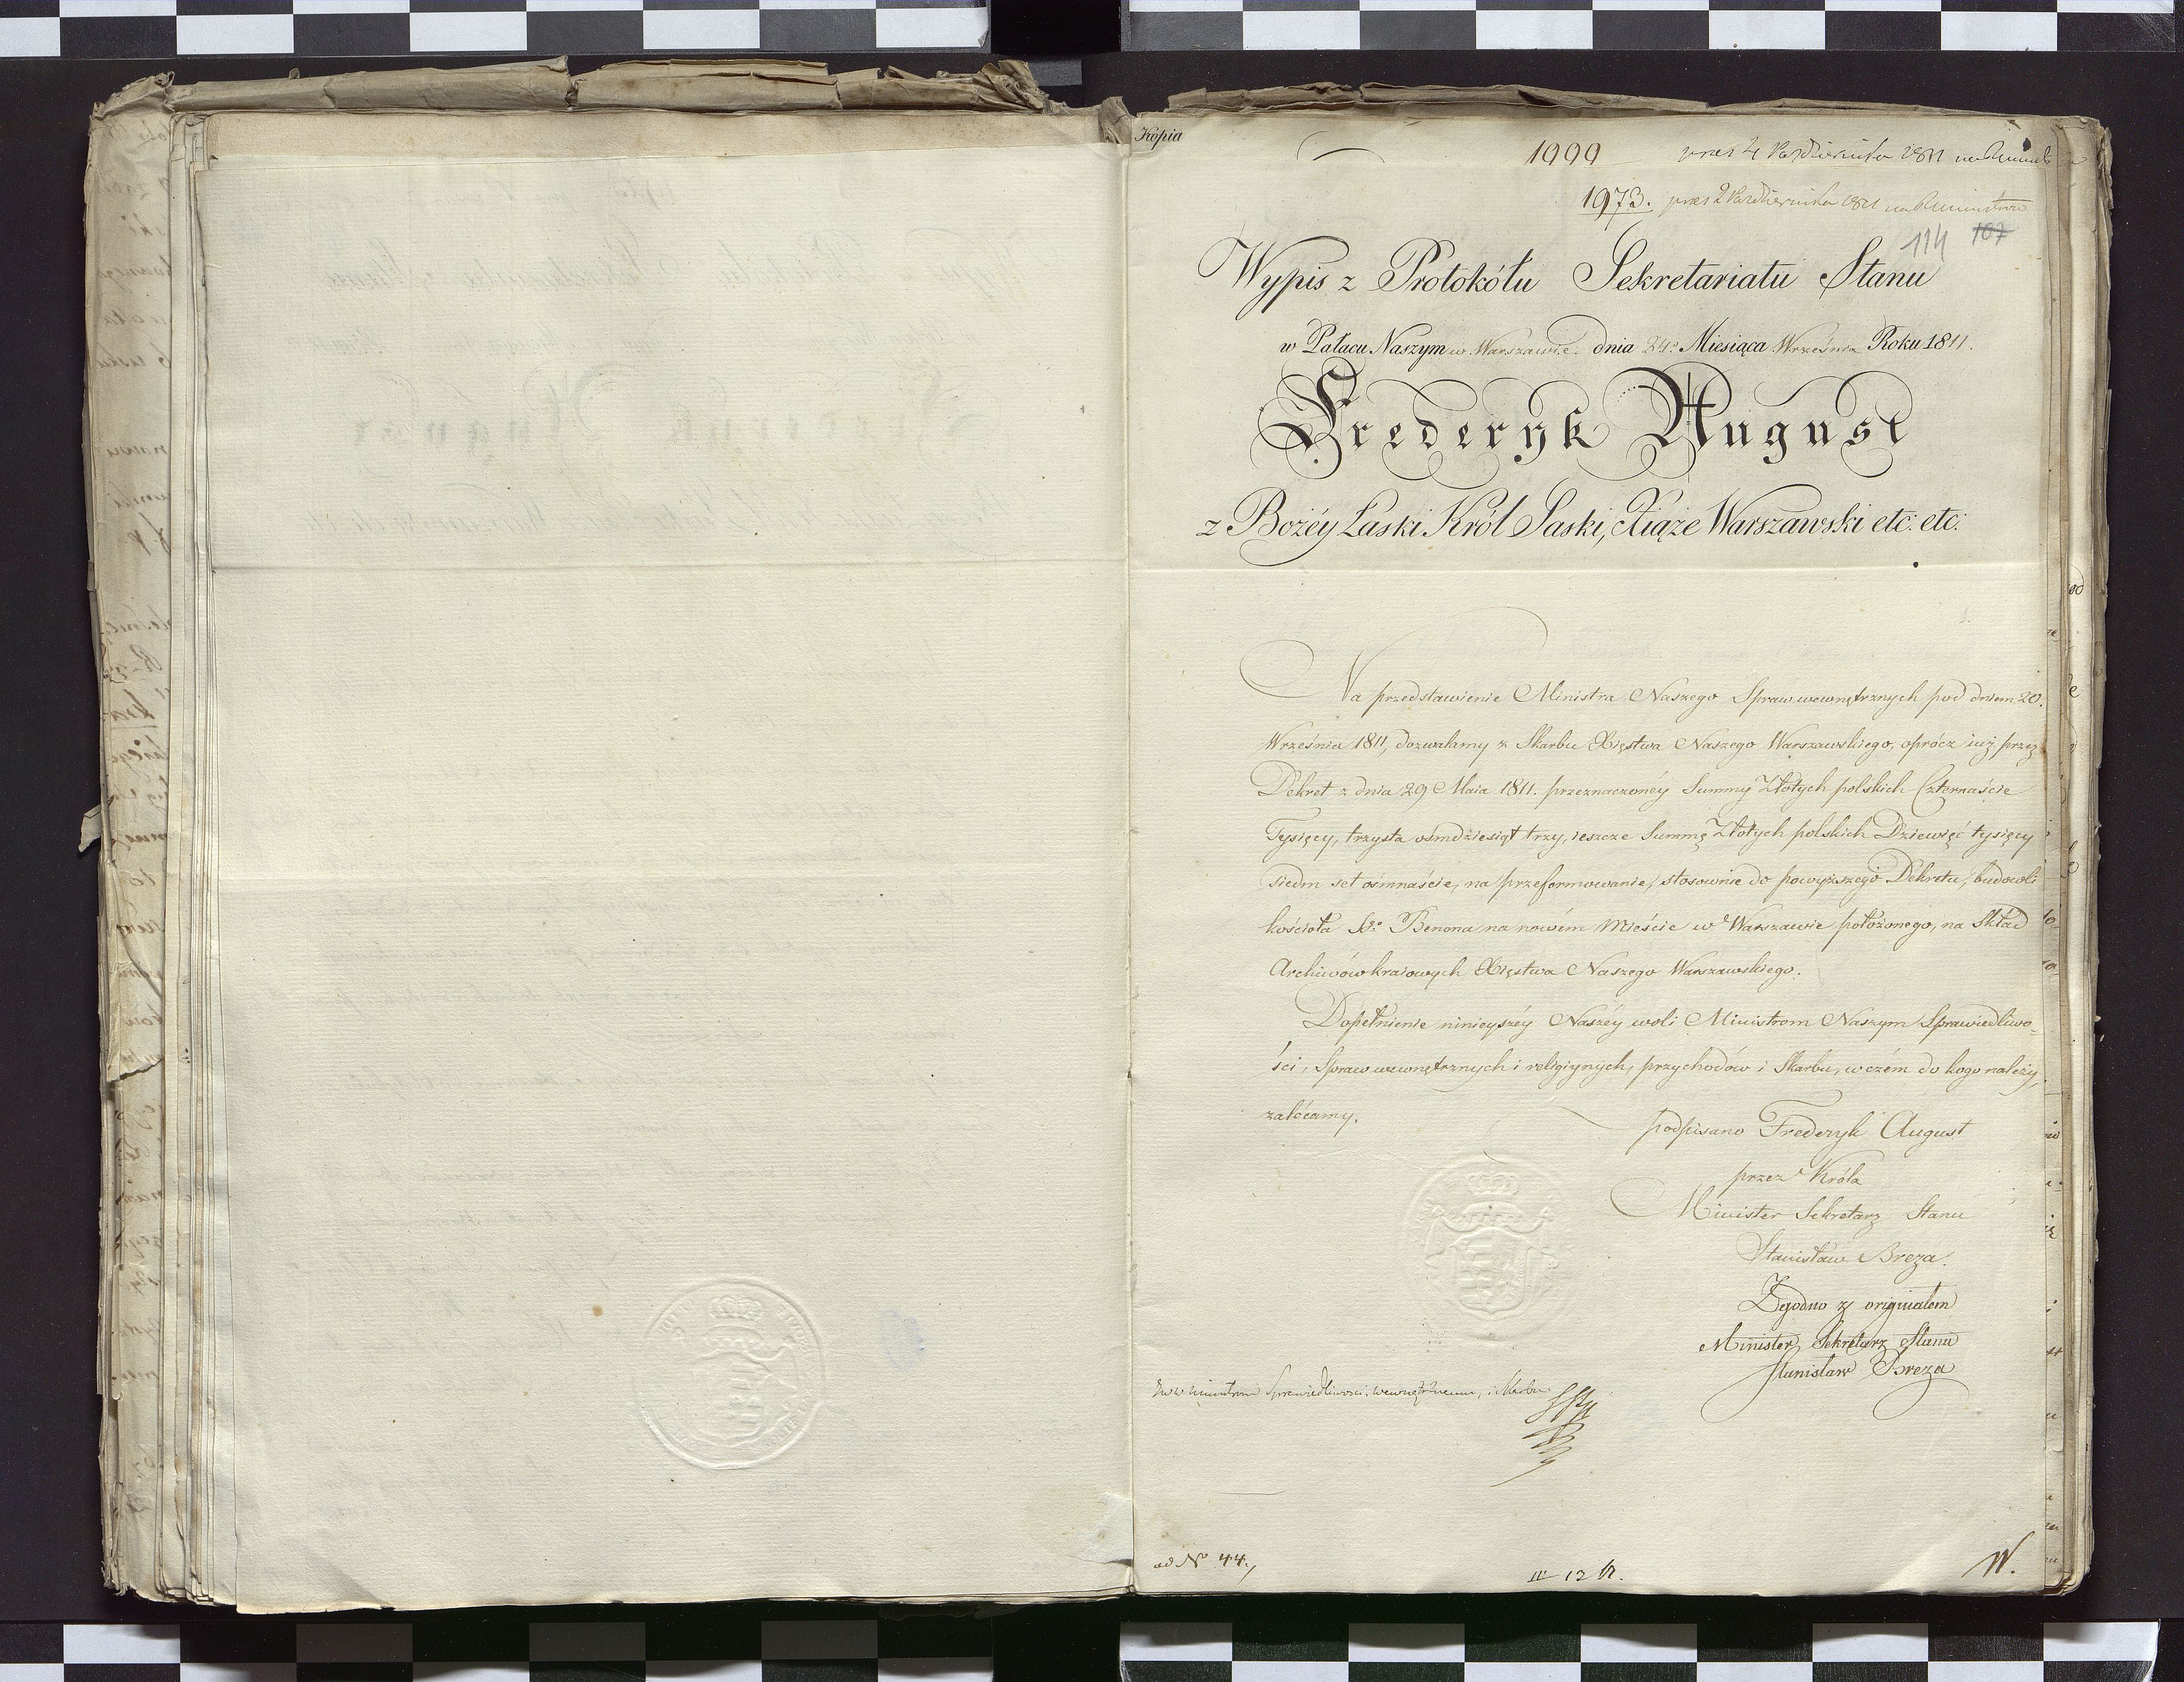 Kópia
1999 4 Października 1811
1973. 2 Października 1811
114 107
Wypis z Protokółu Sekretariatu Stanu
w Pałacu Naszym w Warszawie. dnia 24º Miesiąca Września Roku 1811.
Frederyk August
z Bożéy Łaski Król Saski, Xiąże Warszawski etc: etc:
Na przedstawienie Ministra Naszego Spraw wewnętrznych pod dniem 20.
Września 1811, dozwalamy z Skarbu Xięstwa Naszego Warszawskiego, oprócz iuż przez
Dekret z dnia 29 Maia 1811. przeznaczonéy Summy Złotych polskich Czternaście
Tysięcy, trzysta ośmdziesiąt trzy, ieszcze Summę Złotych polskich Dziewięć tysięcy
siedm set ośmnaście, na przeformowanie, stosownie do powyższego Dekretu, budowli
kościoła Sgo Benona na nowém Mieście w Warszawie położonego, na Skład
Archiwów kraiowych Xięstwa Naszego Warszawskiego.
Dopełnienie ninieyszéy Naszéy woli Ministrom Naszym Sprawiedliwo=
ści, Spraw wewnętrznych i religiynych, przychodów i Skarbu, w czém do kogo należy,
zalécamy.
podpisano Frederyk August
przez Króla
Minister Sekretarz Stanu
Stanisław Breza.
Zgodno z originałem
Minister Sekretarz Stanu
Stanisław Breza
Sprawiedliwosci, wewnętrznemu, i Skarbu
ad Nº 44.
III 12
W.